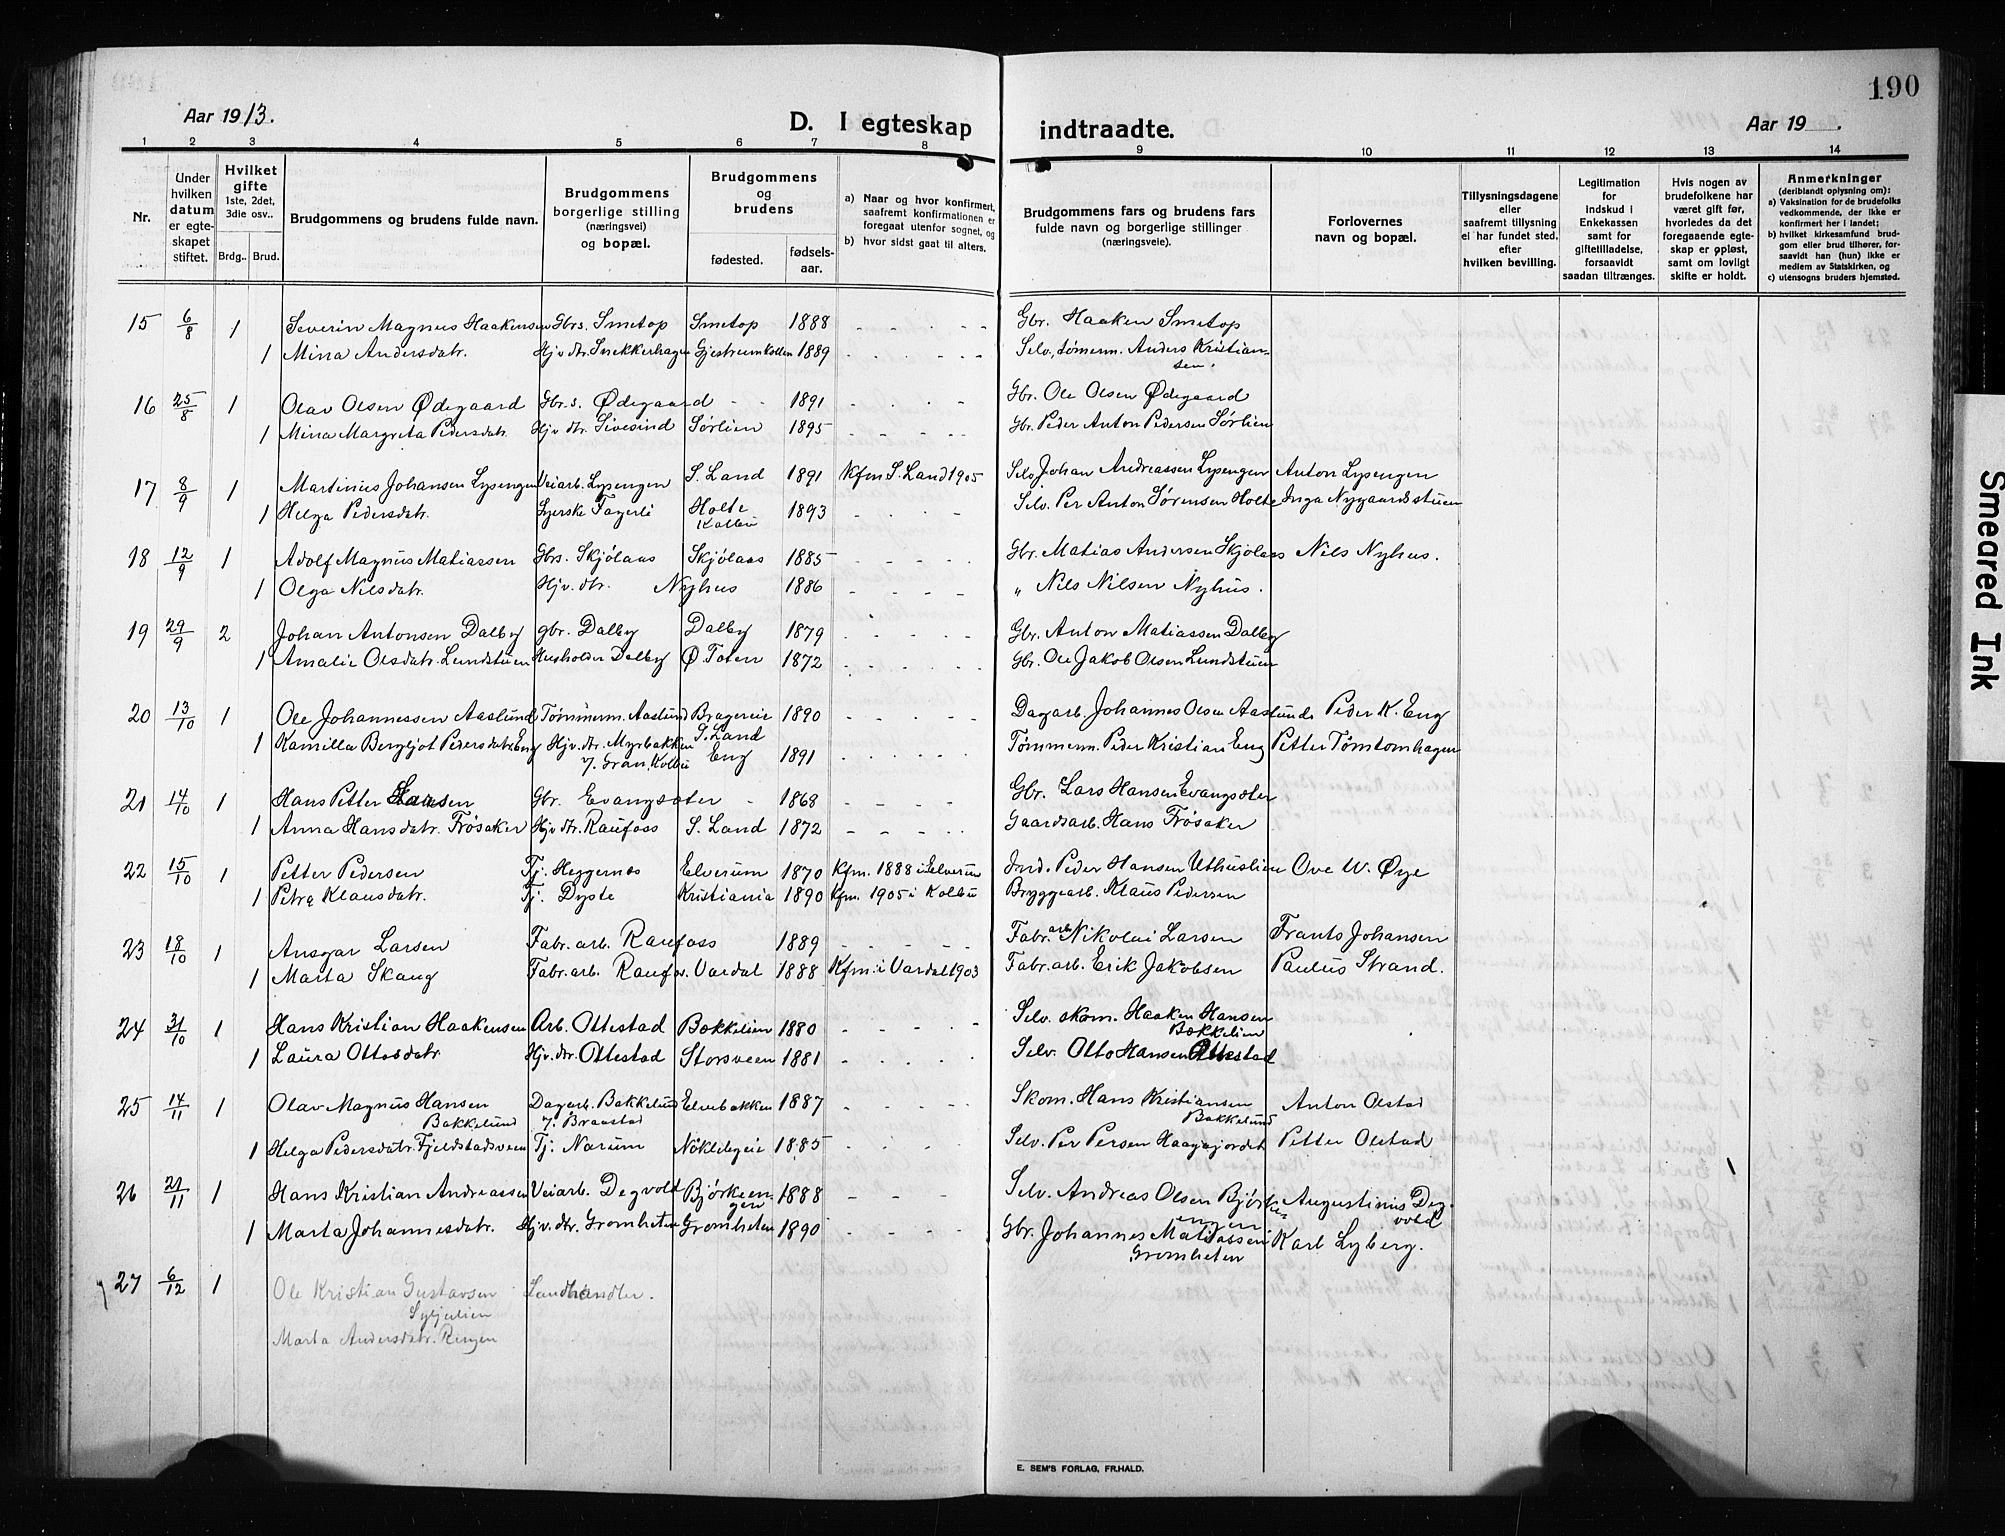 190
Aar 1913.
D. I egteskap
indtraadte.
Aar 19 .
1 2 3 4 5 6 7 8 9 10 11 12 13 14
Nr.
Under hvilken datum er egteskapet stiftet.
Hvilket gifte 1ste, 2det, 3die osv..
Brdg.. Brud.
Brudgommens og brudens fulde navn.
Brudgommens borgerlige stilling (næringsvei) og bopæl.
Brudgommens og brudens
fødested. fødsels-aar.
a) Naar og hvor konfirmert, saafremt konfirmationen er foregaat utenfor sognet, og
b) hvor sidst gaat til alters.
Brudgommens fars og brudens fars fulde navn og borgerlige stillinger (næringsveie).
Forlovernes navn og bopæl.
Tillysningsdagene eller saafremt tillysning ei har fundet sted, efter hvilken bevilling.
Legitimation for Indskud i Enkekassen samt for giftetilladelse, forsaavidt saadan tiltrænges.
Hvis nogen av brudefolkene har været gift før, hvorledes da det foregaaende egteskap er opløst, samt om lovligt skifte er holdt.
Anmerkninger (deriblandt oplysning om):
a) Vaksination for de brudefolks vedkommende, der ikke er konfirmert her i landet;
b) hvilket kirkesamfund brudgom eller brud tilhører, forsaavidt han (hun) ikke er medlem av Statskirken, og
c) utensogns bruders hjemsted.
15 6/8 1 Severin Magnus Haakensen Gbrs. Smetop Smetop 1888 - - - - Gbr. Haaken Smetop
1 Mina Andersdatr. Hjv. dtr. Snekkerhagen Gjestrumkollen 1889 - - - - Selv., tømerm. Anders Kristiansen.
16 25/8 1 Olav Olsen Ødegaard Gbr. s. Ødegaard - - 1891 - - - - Gbr. Ole Olsen Ødegaard
1 Mina Margreta Pedersdatr. Hjv. dtr. Sivesind Sørlien 1895 - - - - Gbr. Peder Anton Pedersen Sørlien
17 8/9 1 Martinus Johansen Lysengen Veiarb. Lysengen S. Land 1891 Kfm S. Land 1905 Selv Johan Andreassen Lysengen Anton Lysengen
1 Helga Pedersdatr. Syerske Fagerli Holte Kolbu 1893 - - - - Selv. Per Anton Sørensen Holte Inga Nygaardsstuen
18 12/9 1 Adolf Magnus Matiassen Gbrs. Skjølaas Skjølaas 1885 - - - - Gbr. Matias Andersen Skjølaas Nils Nyhus.
1 Olga Nilsdatr. Hjv. dtr. Nyhus 1886 - - - - " Nils Nilsen Nyhus.
19 29/9 2 Johan Antonsen Dalby gbr. Dalby Dalby 1879 - - - - Gbr. Anton Matiassen Dalby
1 Amalie Olsdatr. Lundstuen Husholder Dalby Ø. Toten 1872 - - - - Gbr. Ole Jakob Olsen Lundstuen
20 13/10 1 Ole Johannessen Aaslund Tømmerm. Aaslund Bragereie S. Land 1890 - - - - Dagarb. Johannes Olsen Aaslunde Peder K. Eng
1 Kamilla Bergljot Pedersdatr. Eng Hjv. dtr. Myrbakken 7. Gran, Kolbu Eng 1891 - - - - Tømmerm. Peder Kristian Eng Petter Tømtomhagen
21 14/10 1 Hans Petter Larsen Gbr. Evangsæter - 1868 - - - - Gbr. Lars Hansen Evangsæter
1 Anna Hansdatr. Frøsaker Hjv. dtr. Raufoss S. Land 1872 - - - - Gaardsarb. Hans Frøsaker
22 15/10 1 Petter Pedersen Tj. Heggernes Elverum 1870 Kfm. 1888 i Elverum Ind. Peder Hansen Uthuslien Ove W. Øye
1 Petra Klausdatr. Tj. Dyste Kristiania 1890 Kfm. 1905 i Kolbu Bryggearb. Klaus Pedersen
23 18/10 1 Ansgar Larsen Fabr. arb. Raufoss 1889 - - - - Fabr. arb Nikolai Larsen Frants Johansen
1 Marta Skaug Fabr. arb. Raufos. Vardal 1888 Kfm. i Vardal 1903 Fabr. arb. Erik Jakobsen Paulus Strand.
24 31/10 1 Hans Kristian Haakensen Arb. Ottestad Bakkelien 1880 - - - - Selv. skom. Haaken Hansen Bakkelien
1 Laura Ottosdatr. Hjv. dtr. Ottestad Storsveen 1881 - - - - Selv. Otto Hansen Ottestad
25 14/11 1 Olav Magnus Hansen Bakkelund Dagarb. Bakkelund 7. Braastad Elvebakken 1887 - - - - Skom. Hans Kristiansen Bakkelund Anton Olstad
1 Helga Pedersdatr. Fjeldstadsveen Tj. Narum Nøklebyeie 1885 - - - - Selv. Per Persen Haagajordet Petter Olstad
26 21/11 1 Hans Kristian Andreassen Veiarb. Degvold Bjørkeengen 1888 - - - Selv. Andreas Olsen Bjørkeengen Augustinus Degvold
1 Marta Johannesdatr. Hjv. dtr. Gromheten Gromheten 1890 - - - - Gbr. Johannes Matiassen Gromheten Karl Lyberg.
27 6/12 1 Ole Kristian Gustavsen Landhandler.
Marta Andersdatr. Ringen
E. SEM'S FORLAG, FR.HALD.
Smeared Ink